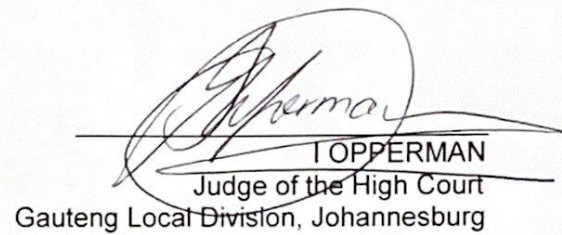 Opperman
I OPPERMAN
Judge of the High Court
Gauteng Local Division, Johannesburg